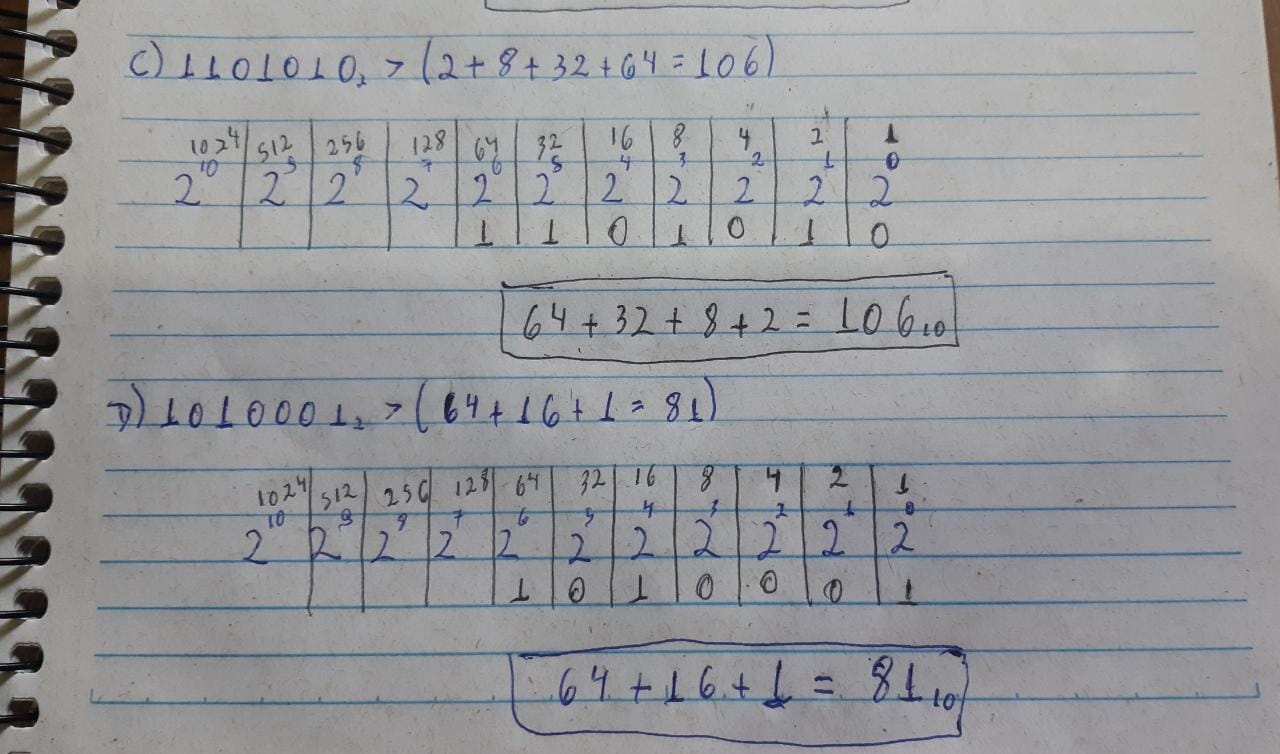 C) 1101010₂ > (2+8+32+64=106)
1024 512 256 128 64 32 16 8 4 2 1
2¹⁰ 2⁹ 2⁸ 2⁷ 2⁶ 2⁵ 2⁴ 2³ 2² 2¹ 2⁰
1 1 0 1 0 1 0
64+32+8+2=106₁₀
D) 1010001₂ > (64+16+1=81)
1024 512 256 128 64 32 16 8 4 2 1
2¹⁰ 2⁹ 2⁸ 2⁷ 2⁶ 2⁵ 2⁴ 2³ 2² 2¹ 2⁰
1 0 1 0 0 0 1
64+16+1=81₁₀